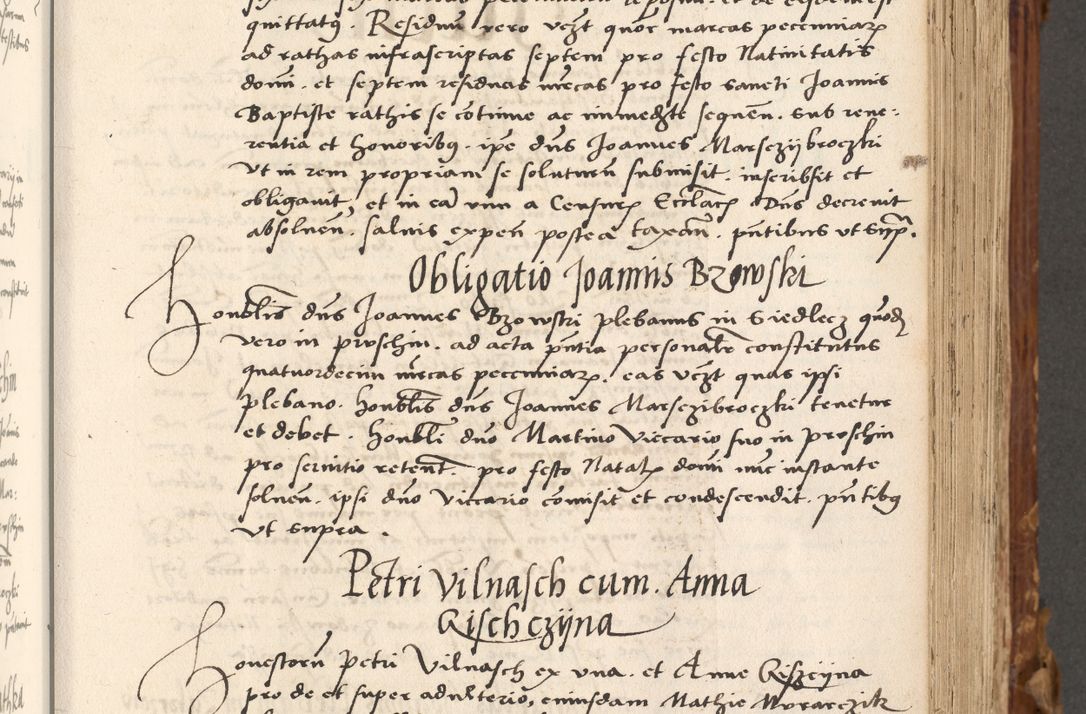 quittatꝰ. Residuũ vero vczt quõc marcas pecuniarꝝ
ad rathas infrascriptas septem pro festo Natiuitatis
domi. et septem residuas mrcas pro festo sancti Joannis
Baptiste rathis se cõtinue ac immedite sequeñ. sub reue-
rentia et honoribꝰ. ipe dns Joannes Marsczijbroczki
vt in rem propriam se soluturũ submisit. inscribsit et
obligauit et in eã vim a Censurꝝ Eccliacꝝ Dns decreuit
absolueñ. saluis expeñ postea taxañ. pñtibus vt supra.
Obligatio Joannis Bzowski
Honblis dns Joannes Bzowski plebanus in Siedlecz quodꝫ
vero in proschin. ad acta pñtia personalr constitutus
quatuordecim mrcas pecuniarꝝ. eas vczt quas ipsi
plebano. honblis dns Joannes Marsczibroczki tenetur
et debet. honbli dno Martino viccario suo in proschin
pro seruitio retent. pro festo Natalꝝ domi nunc instante
soluen. ipsi dno viccario cõmisit et condescendit. pñtibꝰ
vt supra.
Petri Vilnasch cum. Anna
Gischczijna
Honestorũ Petri Vilnasch ex vna. et Anne Giszcijna
pro de et super adulterio, eiusdam Mathie Mrarczik